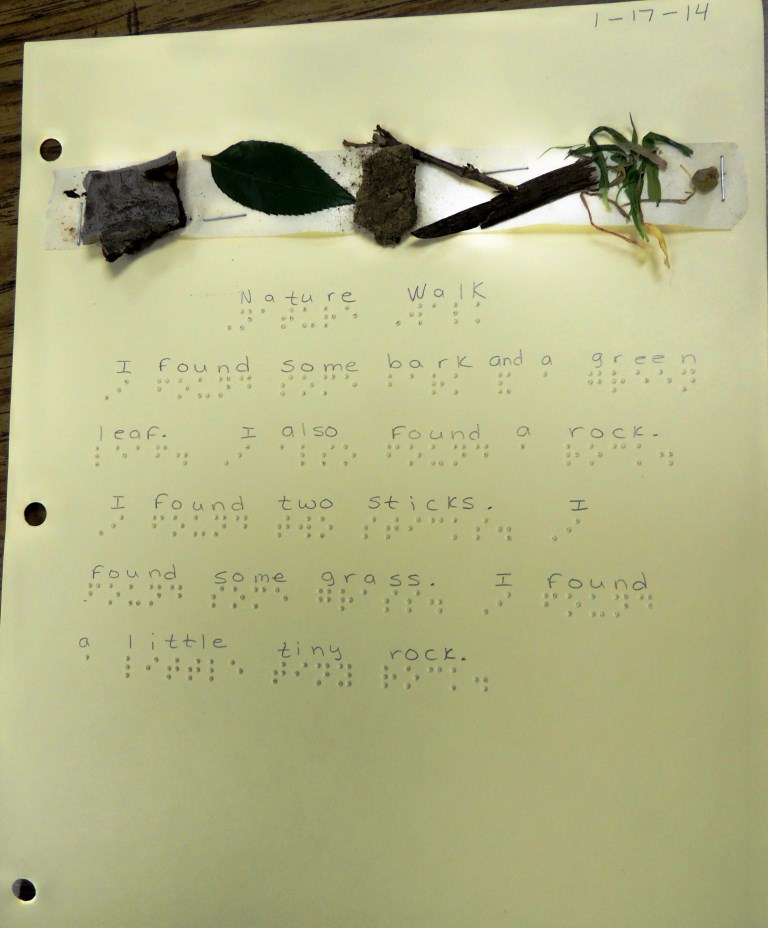 1-17-14
Nature Walk
I found some bark and a green
leaf. I also found a rock.
I found two sticks. I
found some grass. I found
a little tiny rock.